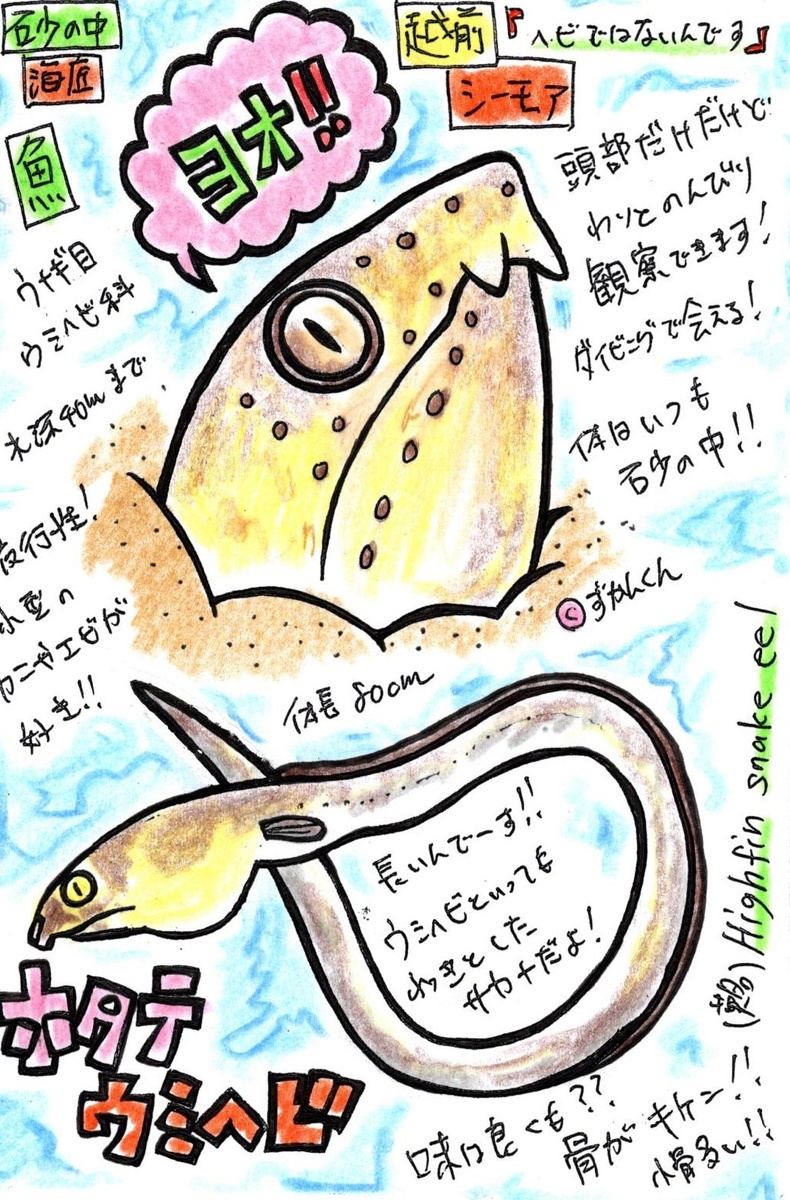 砂の中
海底
魚
越前
シーモア
『ヘビではないんです』
ヨオ!!
頭部だけだけど
わりとのんびり
観察できます!
ダイビングで会える!
体はいつも
砂の中!!
ウナギ目
ウミヘビ科
水深40mまで
夜行性!
小型の
カニやエビが
好き!!
©ずかんくん
体長 80cm
長いんでーす!!
ウミヘビといっても
れっきとした
サカナだよ!
(英名) Highfin snake eel
ホタテ
ウミヘビ
味は良くも??
骨がキケン!!
小骨多い!!